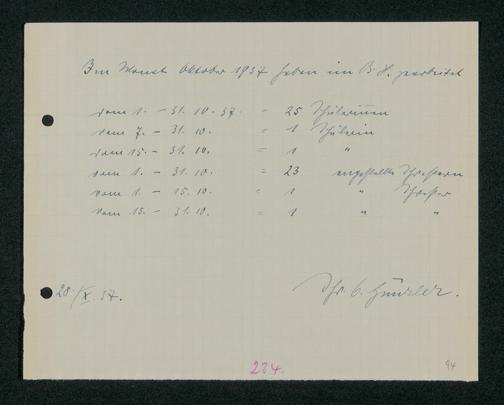 Im Monat Oktober 1937 haben im B.H. gearbeitet
vom 1. - 31. 10. 37. = 25 Schülerinnen
vom 7. - 31. 10. = 1 Schülerin
vom 15. - 31. 10. = 1 "
vom 1. - 31. 10. = 23 angestellte Schwestern
vom 1. - 15. 10. = 1 " Schwester
vom 15. - 31. 10. = 1 " "
28/X. 37.
Schw.
224.
94